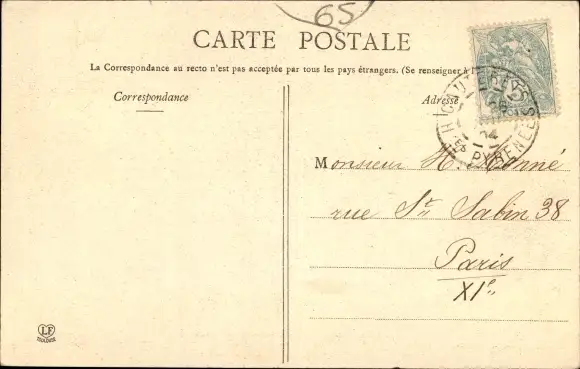 65
CARTE POSTALE
La Correspondance au recto n'est pas acceptée par tous les pays étrangers. (Se renseigner à l
Correspondance
Adresse
CAUTERETS
04
HTES PYRENEES
Monsieur H.
rue St Sabin 38
Paris
XIe
LF